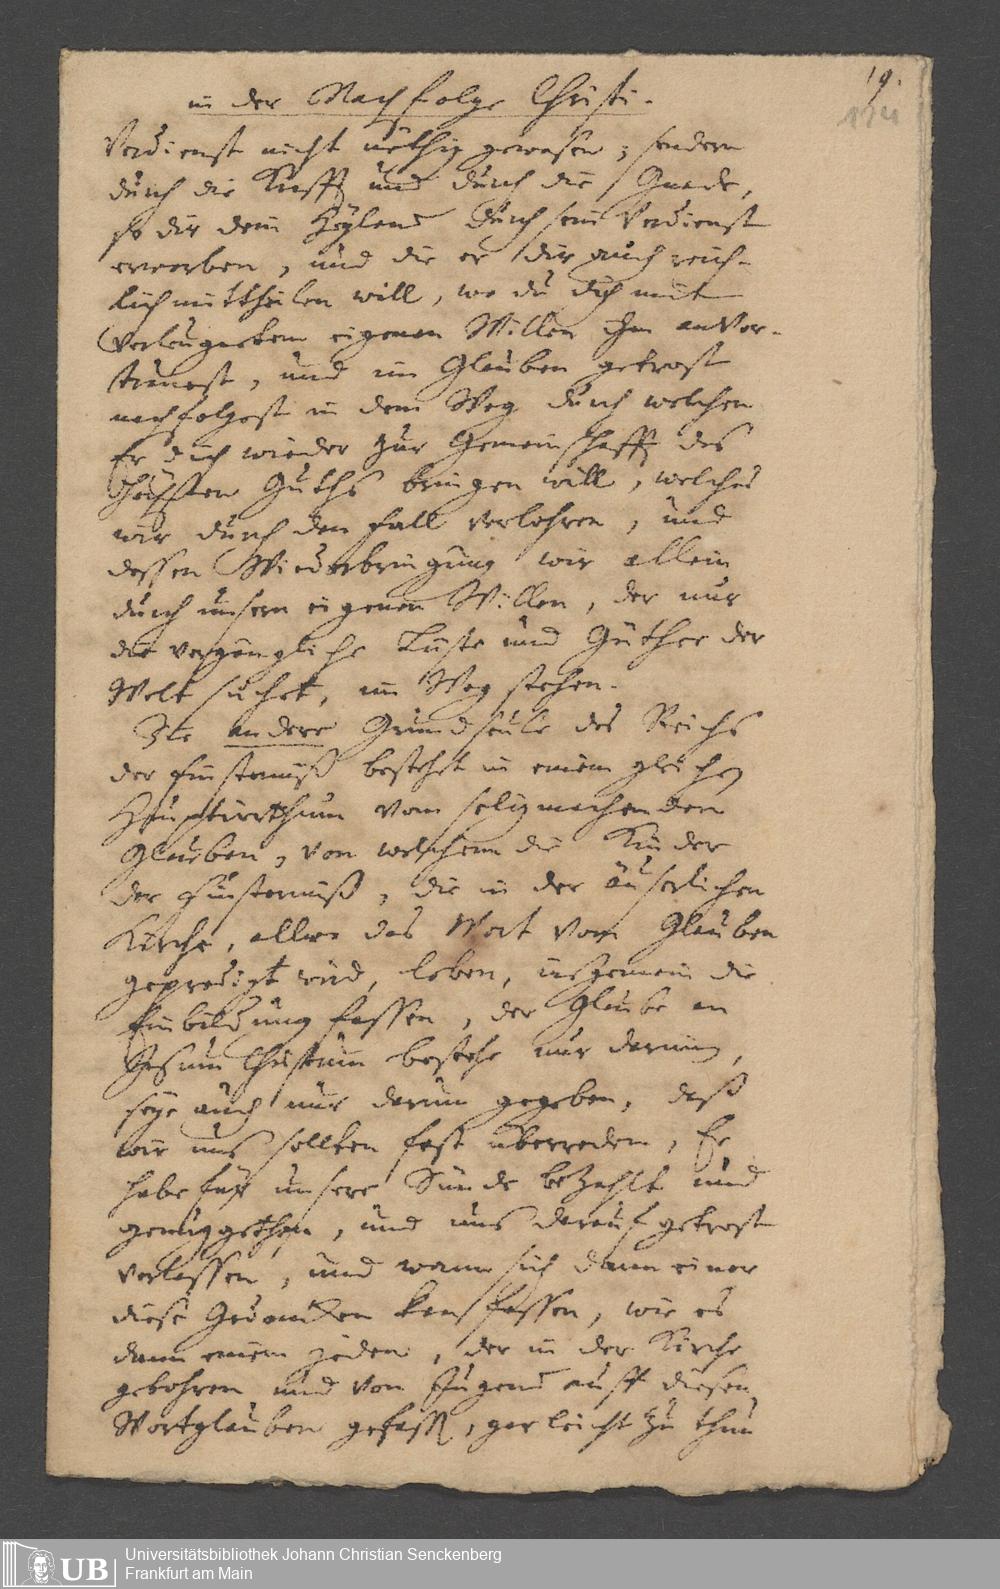 19.
in der Nachfolge Christi.
Verdienst nicht nöthig gewesen; sondern
durch die Krafft und durch die Gnade,
so dir dein Heyland durch sein Verdienst
erworben, und die er dir auch reich-
lich mittheilen will, wo du dich mit
verleugnetem eigenen Willen ihm anver-
trauest, und im Glauben getrost
nachfolgest in dem Weg durch welchen
Er dich wieder zur Gemeinschafft des
höchsten Guths bringen will, welches
wir durch den Fall verlohren, und
dessen Wiederbringung wir allein
durch unsern eigenen Willen, der nur
die vergängliche Lüste und Güther der
Welt suchet, im Weg stehen.
Die andere Grundseule des Reichs
der Finsterniß bestehet in einem gleichen
Hauptirrthum vom seligmachenden
Glauben, von welchem die Kinder
der Finsterniß, die in der äuserlichen
Kirche, allwo das Wort vom Glauben
geprediget wird, leben, insgemein die
Einbildung fassen, der Glaube an
Jesum Christum bestehe nur darinn,
seye auch nur darum gegeben, daß
wir uns sollten fest überreden, Er
habe für unsere Sünde bezahlt und
genuggethan, und uns darauf getrost
verlassen, und wann sich dann einer
diese Gedancken kan fassen, wie es
dann einem jeden, der in der Kirche
gebohren und von Jugend auff diesen
Wortglauben gefasst, gar leicht zu thun
UB
Universitätsbibliothek Johann Christian Senckenberg
Frankfurt am Main